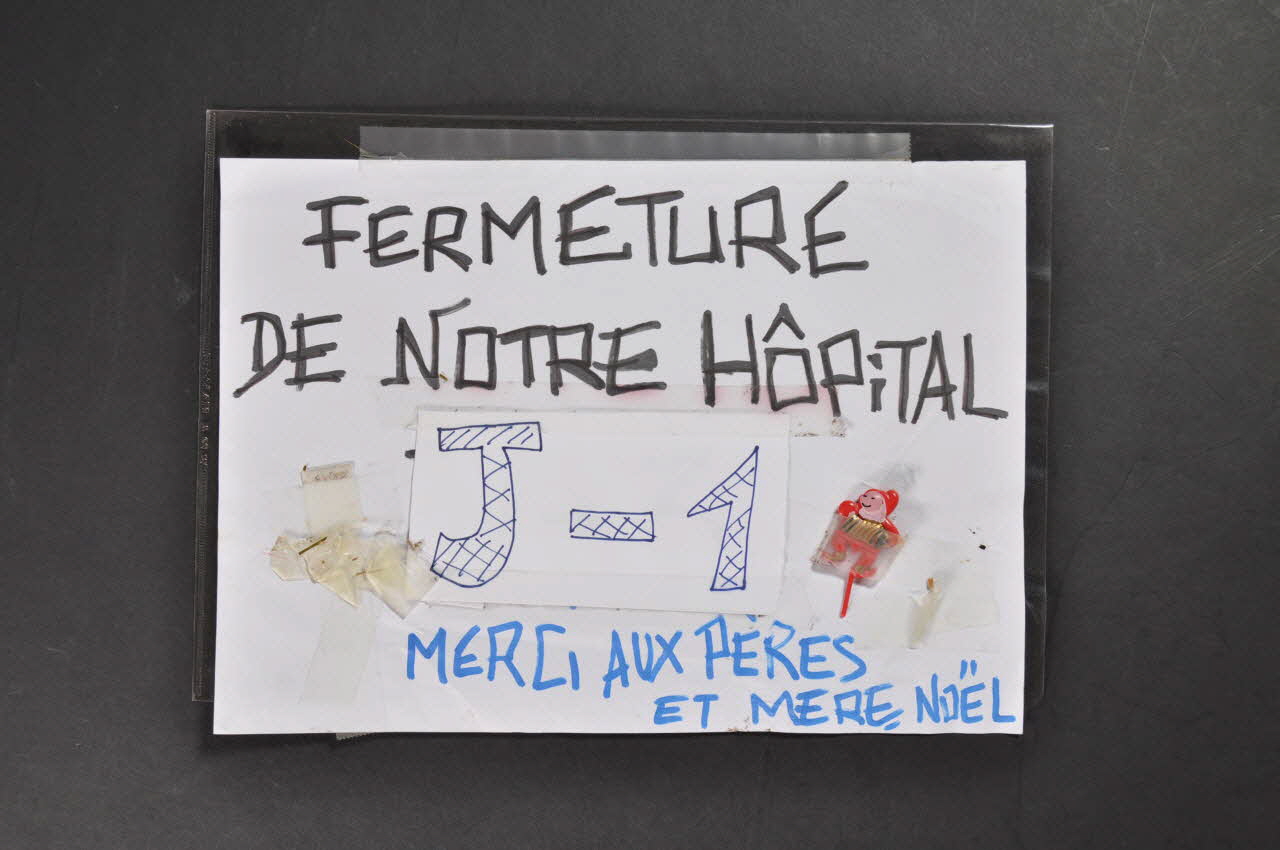 FERMETURE
DE NOTRE HÔPiTAL
J-1
MERCi AUX PÈRES
ET MERE NOËL